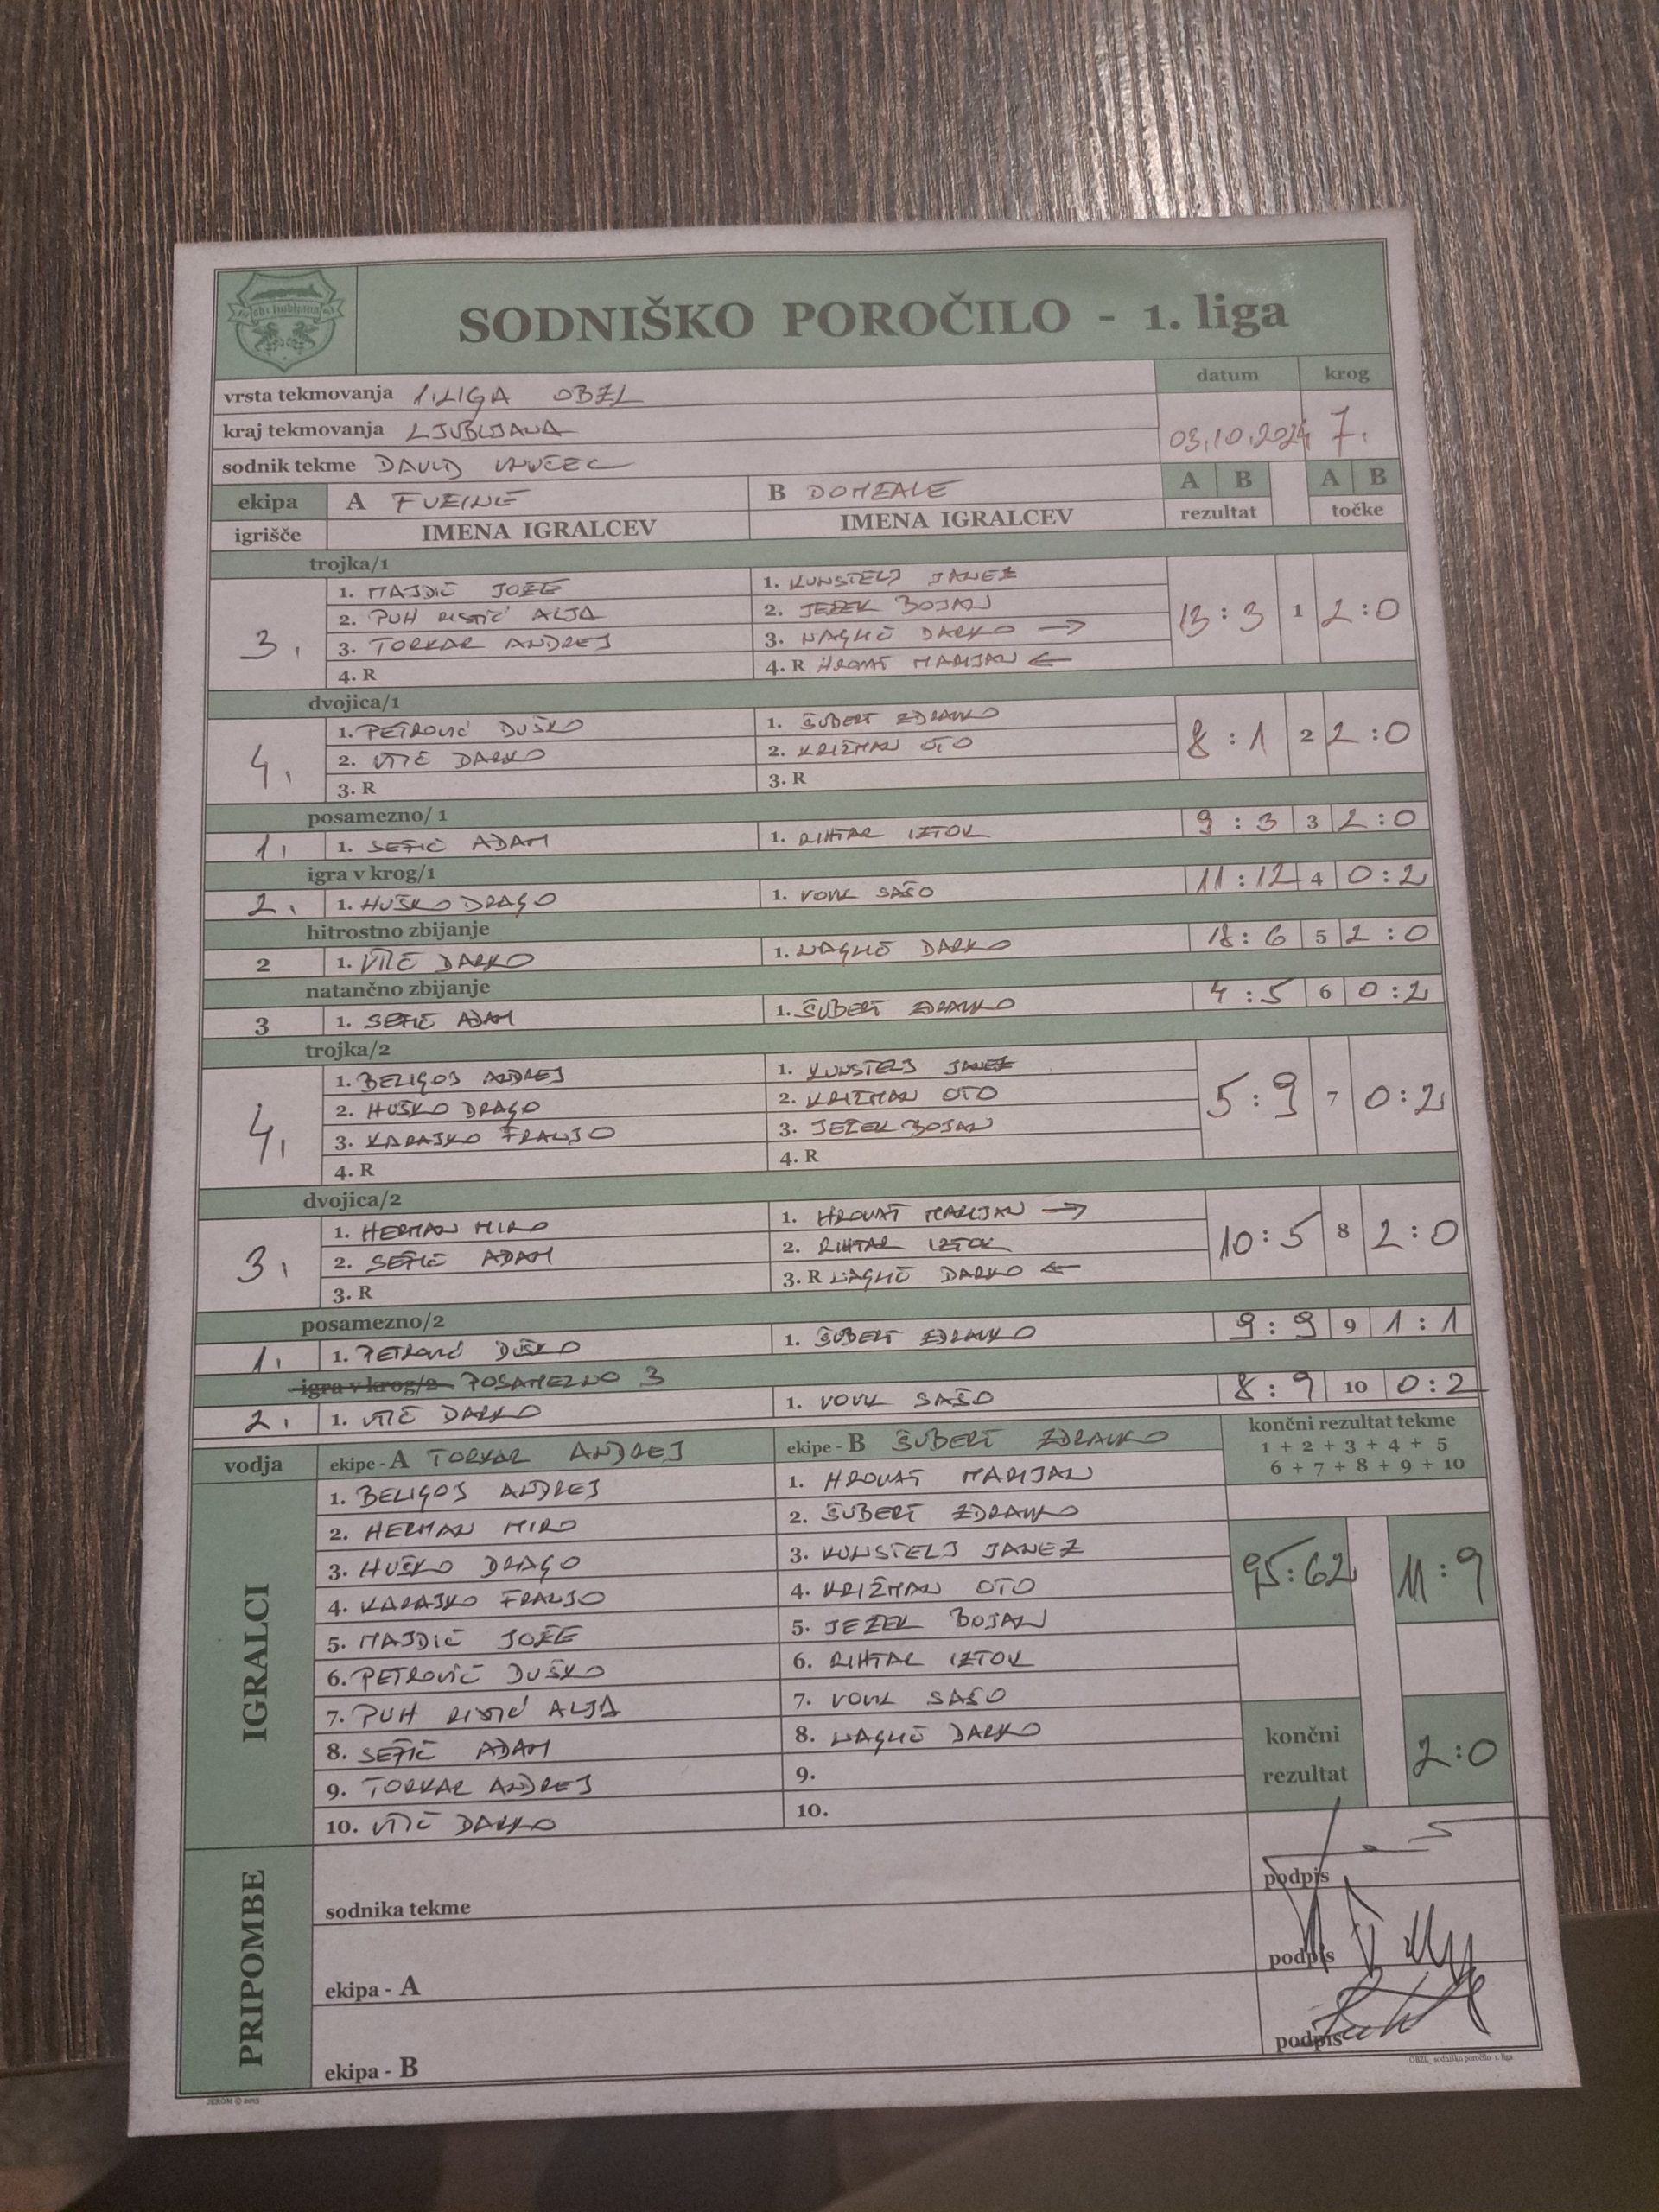 SODNIŠKO POROČILO - 1. liga
vrsta tekmovanja 1. LIGA OBZL
datum krog
kraj tekmovanja LJUBLJANA
03.10.2024 7.
sodnik tekme DAVID
ekipa A FUŽINE B DOMŽALE A B A B
igrišče IMENA IGRALCEV IMENA IGRALCEV rezultat točke
trojka/1
3.
1. MAJDIČ JOŽE 1. KUNSTELJ JANEZ
2. PUH RISTIĆ ALJA 2. JEŽEK BOJAN
3. TORKAR ANDREJ 3. NAGLIČ DARKO →
4. R 4. R HROVAT MARIJAN ←
13 : 3 1 2 : 0
dvojica/1
4.
1. PETROVIĆ DUŠKO 1. ŠUBERT ZDRAVKO
2. VITIĆ DARKO 2. KRIŽMAN OTO
3. R 3. R
8 : 1 2 2 : 0
posamezno/ 1
1. 1. SEFIĆ ADAM 1. RIHTAR IZTOK 9 : 3 3 2 : 0
igra v krog/1
2. 1. HUŠKO DRAGO 1. VOVK SAŠO 11 : 12 4 0 : 2
hitrostno zbijanje
2 1. VITIĆ DARKO 1. NAGLIČ DARKO 18 : 6 5 2 : 0
natančno zbijanje
3 1. SEFIĆ ADAM 1. ŠUBERT ZDRAVKO 4 : 5 6 0 : 2
trojka/2
4.
1. BELIGOJ ANDREJ 1. KUNSTELJ JANEZ
2. HUŠKO DRAGO 2. KRIŽMAN OTO
3. KARAJKO FRANJO 3. JEŽEK BOJAN
4. R 4. R
5 : 9 7 0 : 2
dvojica/2
3.
1. HERMAN MIRO 1. HROVAT MARIJAN →
2. SEFIĆ ADAM 2. RIHTAR IZTOK
3. R 3. R NAGLIČ DARKO ←
10 : 5 8 2 : 0
posamezno/2
1. 1. PETROVIĆ DUŠKO 1. ŠUBERT ZDRAVKO 9 : 9 9 1 : 1
igra v krog/2 POSAMEZNO 3
2. 1. VITIĆ DARKO 1. VOVK SAŠO 8 : 9 10 0 : 2
vodja ekipe - A TORKAR ANDREJ ekipe - B ŠUBERT ZDRAVKO
končni rezultat tekme
1 + 2 + 3 + 4 + 5
6 + 7 + 8 + 9 + 10
IGRALCI
1. BELIGOJ ANDREJ 1. HROVAT MARIJAN
2. HERMAN MIRO 2. ŠUBERT ZDRAVKO
3. HUŠKO DRAGO 3. KUNSTELJ JANEZ
4. KARAJKO FRANJO 4. KRIŽMAN OTO
5. MAJDIČ JOŽE 5. JEŽEK BOJAN
6. PETROVIĆ DUŠKO 6. RIHTAR IZTOK
7. PUH RISTIĆ ALJA 7. VOVK SAŠO
8. SEFIĆ ADAM 8. NAGLIČ DARKO
9. TORKAR ANDREJ 9.
10. VITIĆ DARKO 10.
95 : 62 11 : 9
končni rezultat 2 : 0
PRIPOMBE
sodnika tekme podpis
ekipa - A podpis
ekipa - B podpis
JEROM © 2013
OBZL, sodniško poročilo 1. liga